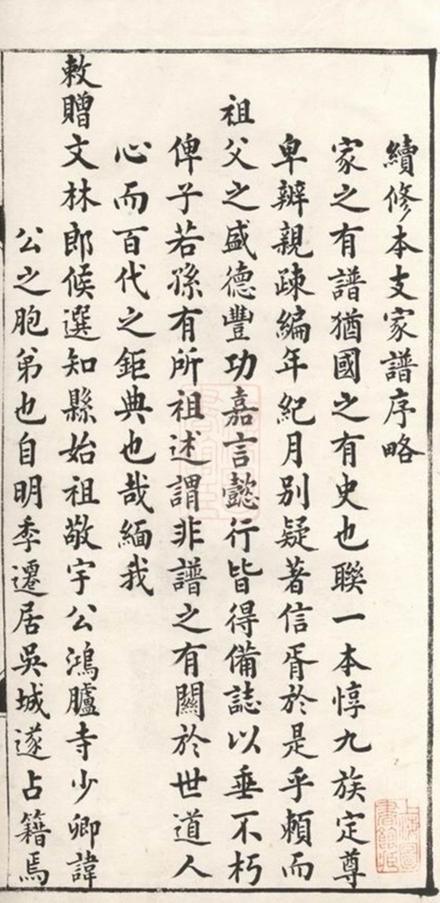 續修本支家譜序略
家之有譜猶國之有史也聯一本惇九族定尊
卑辨親疎編年紀月別疑著信胥於是乎頼而
祖父之盛德豐功嘉言懿行皆得備誌以垂不朽
俾子若孫有所祖述謂非譜之有關於世道人
心而百代之鉅典也哉緬我
敕贈文林郎候選知縣始祖敬宇公鴻臚寺少卿諱
公之胞弟也自明季遷居吳城遂占籍焉
上海圖
書館藏